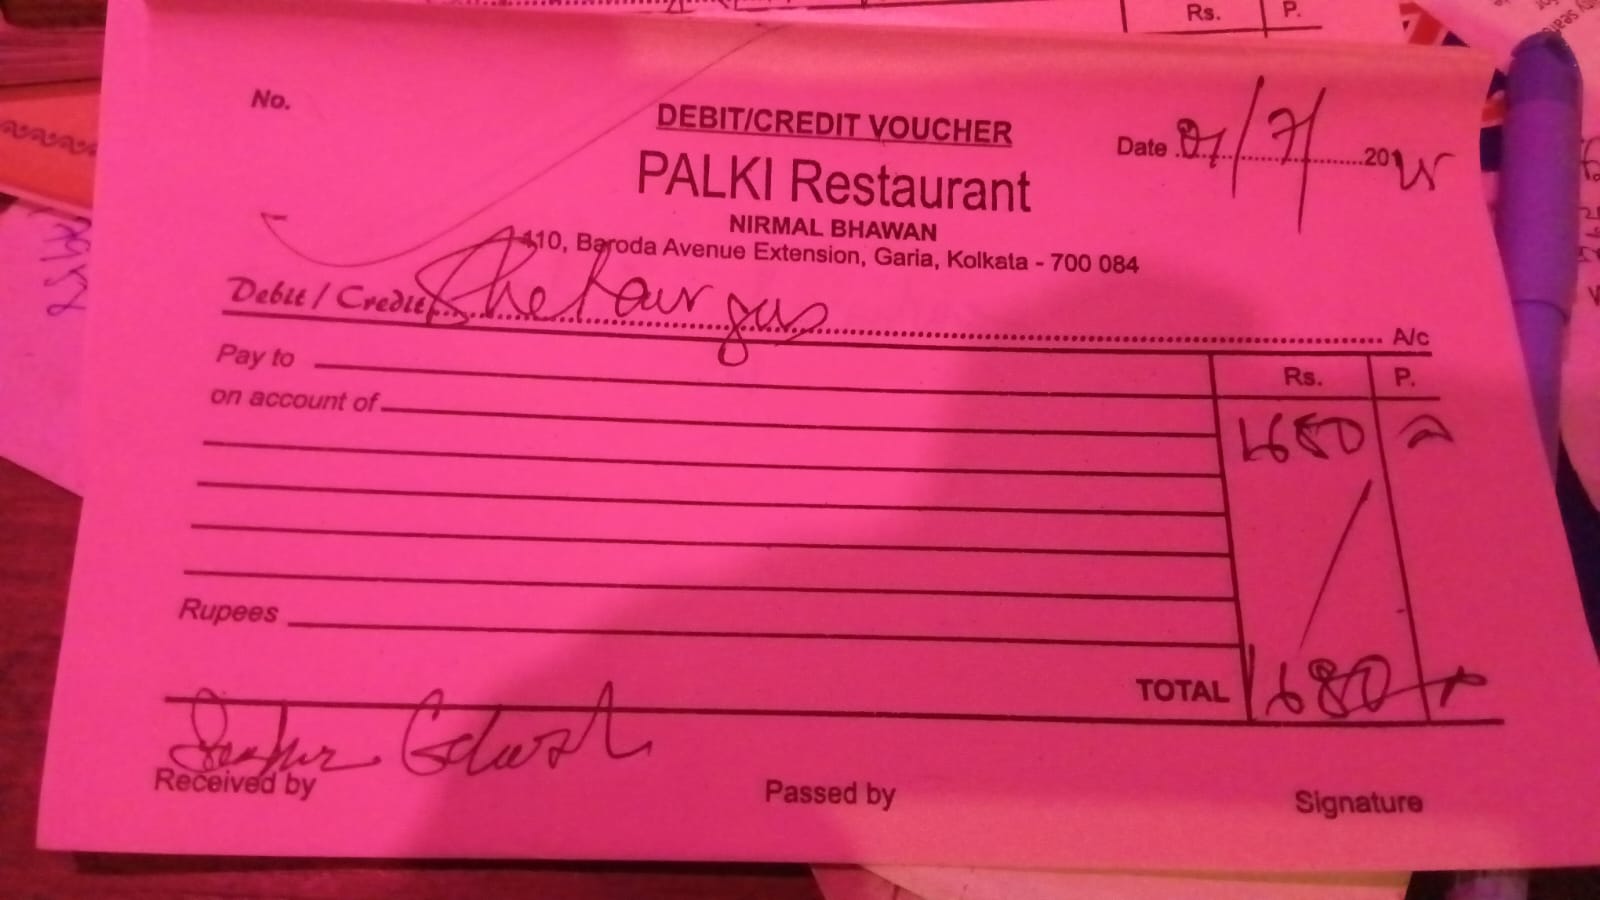 Rs. P.
No.
DEBIT/CREDIT VOUCHER
Date 07/7/20
PALKI Restaurant
NIRMAL BHAWAN
110, Baroda Avenue Extension, Garia, Kolkata - 700 084
Debit / Credit gas A/c
Pay to Rs. P.
on account of
1680
Rupees
TOTAL 1680
Received by Passed by Signature